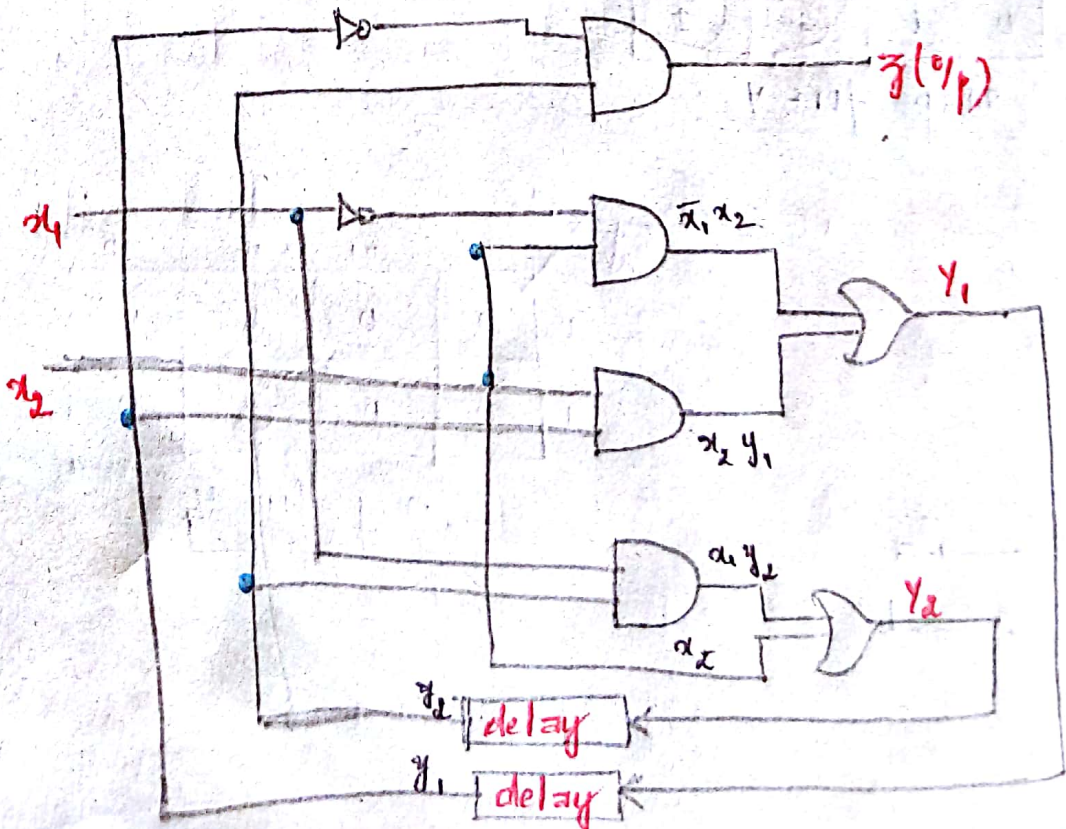 z(o/p)
x₁
x̄₁ x₂
Y₁
x₂
x₂ y₁
x₁ y₂
Y₂
x₂
y₂
delay
y₁
delay